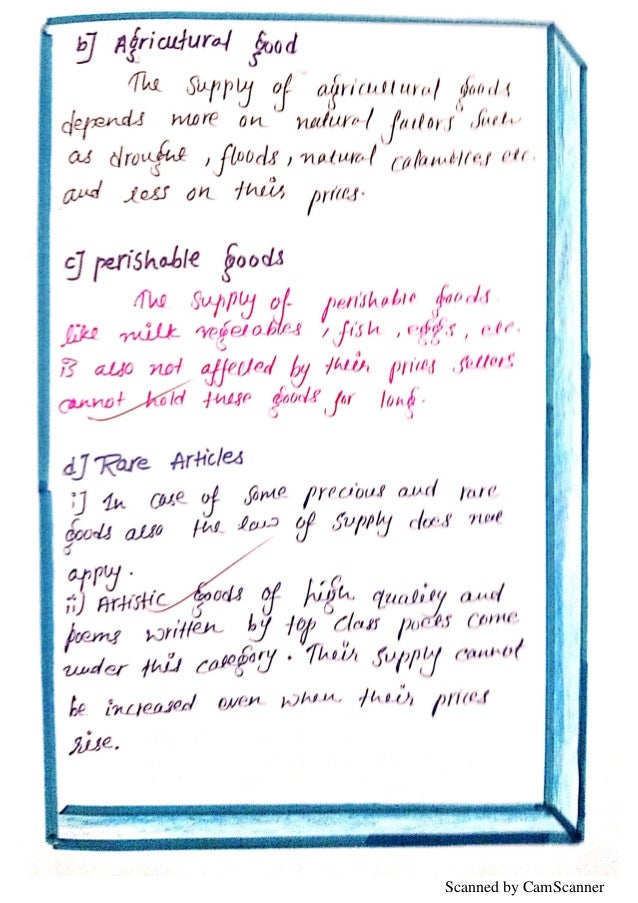 b] Agricutural good
The supply of agricultural goods
depends more on natural factors such
as drought, floods, natural calamities etc.
and less on their prices.
c] perishable goods
The supply of perishable goods
like milk vegetables, fish, eggs, etc.
is also not affected by their prices sellers
cannot hold these goods for long.
d] Rare Articles
i] In case of some precious and rare
goods also the law of supply does not
apply.
ii) Artistic goods of high quality and
poems written by top class poets come
under this category. Their supply cannot
be increased even when their prices
rise.
Scanned by CamScanner